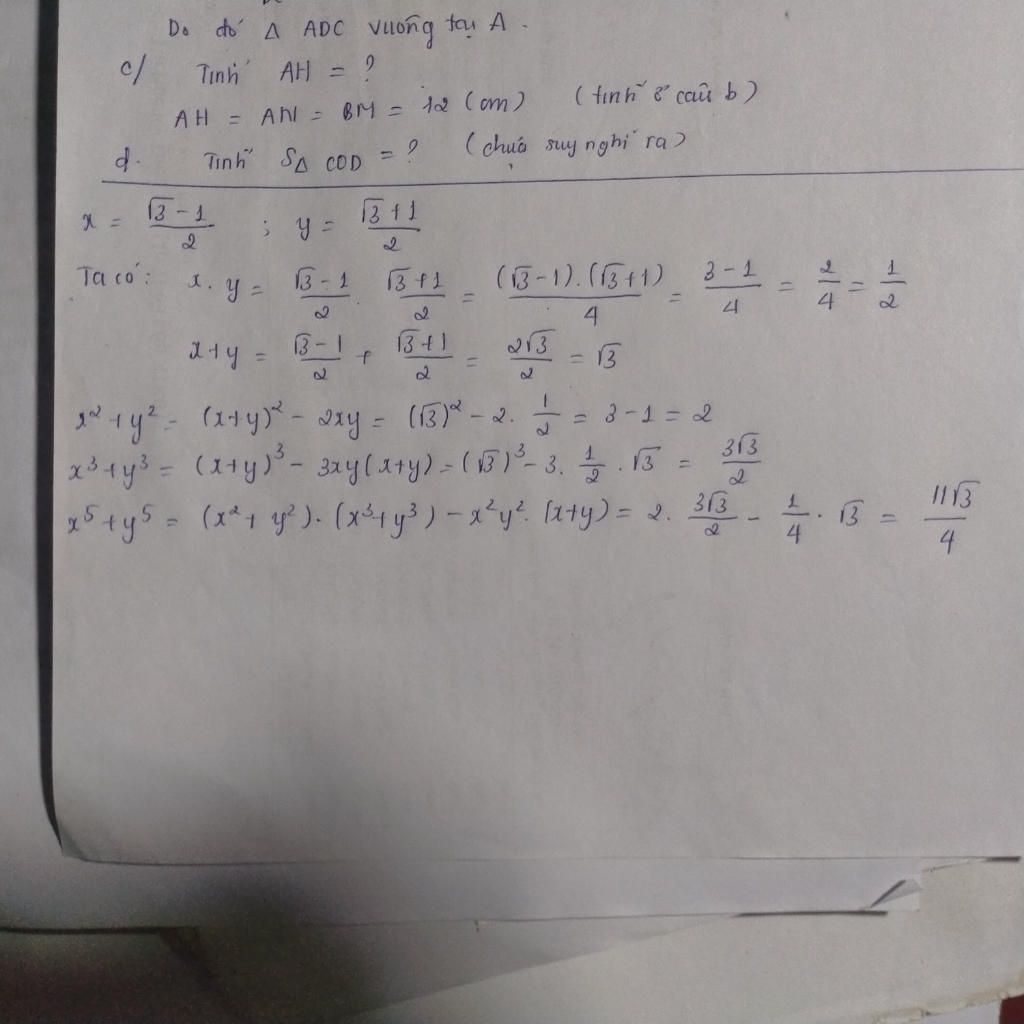 Do đó Δ ADC vuông tại A.
c/ Tính AH = ?
AH = AN = BM = 12 (cm) (tính ở câu b)
d. Tính SΔ COD = ? (chưa suy nghĩ ra)
x = (√3 - 1)/2 ; y = (√3 + 1)/2
Ta có: x.y = (√3 - 1)/2 . (√3 + 1)/2 = ((√3 - 1).(√3 + 1))/4 = (3 - 1)/4 = 2/4 = 1/2
x + y = (√3 - 1)/2 + (√3 + 1)/2 = 2√3/2 = √3
x² + y² = (x+y)² - 2xy = (√3)² - 2. 1/2 = 3 - 1 = 2
x³ + y³ = (x+y)³ - 3xy(x+y) = (√3)³ - 3. 1/2 . √3 = 3√3/2
x⁵ + y⁵ = (x² + y²).(x³ + y³) - x²y².(x+y) = 2. 3√3/2 - 1/4 . √3 = 11√3/4